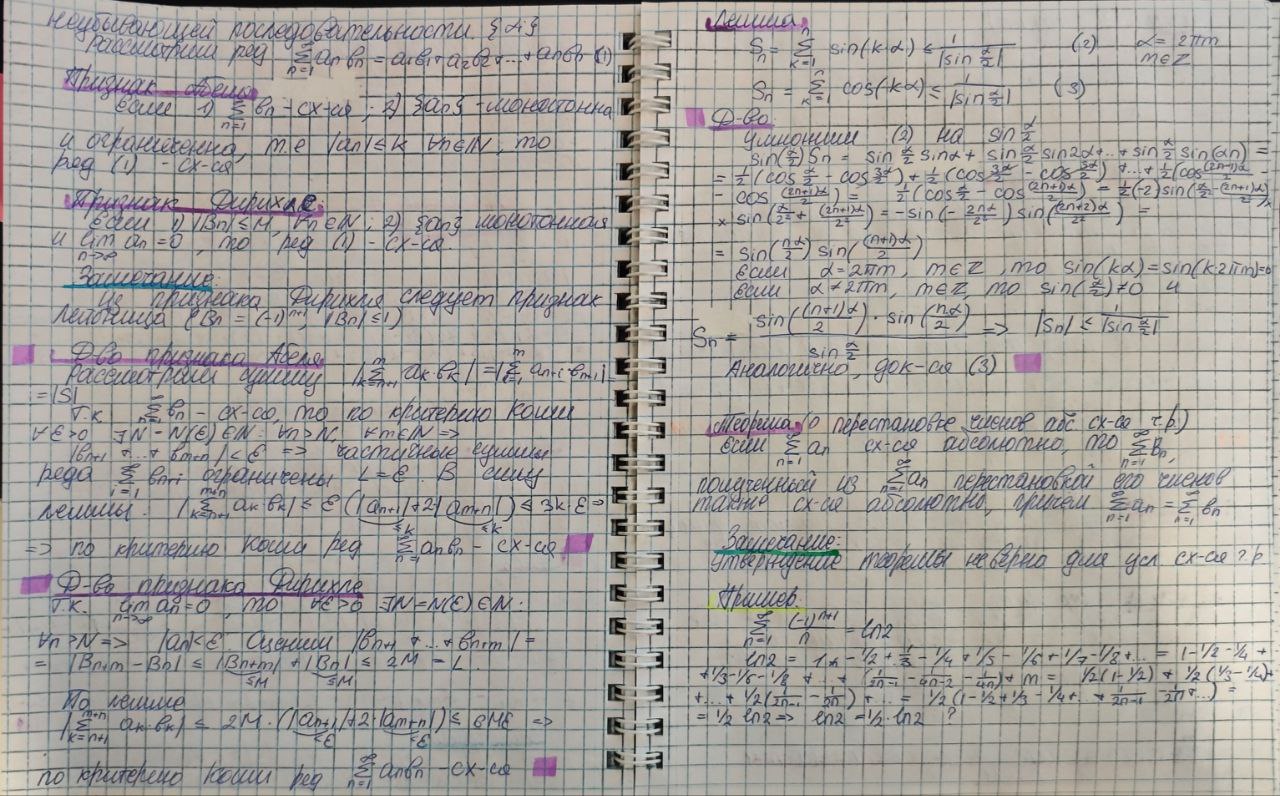 неубывающей последовательности {αi}
Рассмотрим ряд ∞ Σ n=1 anbn = a1b1+a2b2+...+anbn (1)
Признак Абеля
Если 1) ∞ Σ n=1 bn - сх-ся ; 2) {an} - монотонна
и ограниченна, т.е |an| ≤ k ∀n∈N, то
ряд (1) - сх-ся
Признак Дирихле:
Если 1) |Bn| ≤ M, ∀n∈N ; 2) {an} монотонная
и lim n→∞ an = 0, то ряд (1) - сх-ся.
Замечание:
Из признака Дирихля следует признак
Лейбница (bn = (-1)^(n+1), |Bn| ≤ 1)
Д-во признака Абеля
Рассмотрим сумму |m Σ k=n+1 ak·bk| = |m Σ i=1 an+i·bm+i| =
= |S|
Т.к. ∞ Σ n=1 bn - сх-ся, то по критерию Коши
∀ε>0 ∃N=N(ε)∈N: ∀n>N, ∀m∈N =>
|bn+1 + ... + bm+n| < ε => частичные суммы
ряда ∞ Σ i=1 bn+i ограничены L=ε В силу
леммы: |m+n Σ k=n+1 ak·bk| ≤ ε(|an+1|+2|am+n|) ≤ 3k·ε =>
≤k ≤k
=> по критерию Коши ряд ∞ Σ n=1 anbn - сх-ся
Д-во признака Дирихле
Т.к. lim n→∞ an = 0, то ∀ε>0 ∃N=N(ε)∈N:
∀n>N => |an|<ε Оценим |bn+1 + ... + bn+m| =
= |Bn+m - Bn| ≤ |Bn+m| + |Bn| ≤ 2M = L.
≤M ≤M
По лемме
|m+n Σ k=n+1 ak·bk| ≤ 2M·(|an+1|+2·|am+n|) ≤ 6Mε =>
≤ε ≤ε
по критерию Коши ряд ∞ Σ n=1 anbn - сх-ся
Лемма
Sn = n Σ k=1 sin(k·α) ≤ 1/|sin α/2| (2) α = 2πm
m∈Z
Sn = n Σ k=1 cos(kα) ≤ 1/|sin α/2| (3)
Д-во
Умножим (2) на sin α/2
sin(α/2) Sn = sin α/2 sinα + sin α/2 sin2α +..+ sin α/2 sin(αn) =
= 1/2 (cos α/2 - cos 3α/2) + 1/2 (cos 3α/2 - cos 5α/2) +...+ 1/2 (cos (2n-1)α/2 -
- cos (2n+1)α/2) = 1/2 (cos α/2 - cos (2n+1)α/2) = 1/2 (-2) sin(α/2² - (2n+1)α/2²) ×
× sin(α/2² + (2n+1)α/2²) = -sin(- 2nα/2²) sin((2n+2)α/2²) =
= sin(nα/2) sin((n+1)α/2)
Если α = 2πm, m∈Z, то sin(kα) = sin(k·2πm) = 0
Если α ≠ 2πm, m∈Z, то sin(α/2) ≠ 0 и
Sn = sin((n+1)α/2) · sin(nα/2) / sin α/2 => |Sn| ≤ 1/|sin α/2|
Аналогично, док-ся (3)
Теорема (о перестановке членов абс сх-ся ч.р.)
Если ∞ Σ n=1 an сх-ся абсолютно, то ∞ Σ n=1 bn,
полученный из ∞ Σ n=1 an перестановкой его членов
также сх-ся абсолютно, причем ∞ Σ n=1 an = ∞ Σ n=1 bn
Замечание:
Утверждение теоремы неверно для усл. сх-ся ч.р.
Пример:
∞ Σ n=1 (-1)^(n+1)/n = ln2
ln2 = 1 - 1/2 + 1/3 - 1/4 + 1/5 - 1/6 + 1/7 - 1/8 + ... = 1 - 1/2 - 1/4 +
+ 1/3 - 1/6 - 1/8 +...+ (1/2n-1 - 1/4n-2 - 1/4n) + = 1/2(1 - 1/2) + 1/2(1/3 - 1/4) +
+...+ 1/2(1/2n-1 - 1/2n) + ... = 1/2(1 - 1/2 + 1/3 - 1/4 +.. + 1/2n-1 - 1/2n +...) =
= 1/2 ln2 => ln2 = 1/2·ln2 ?